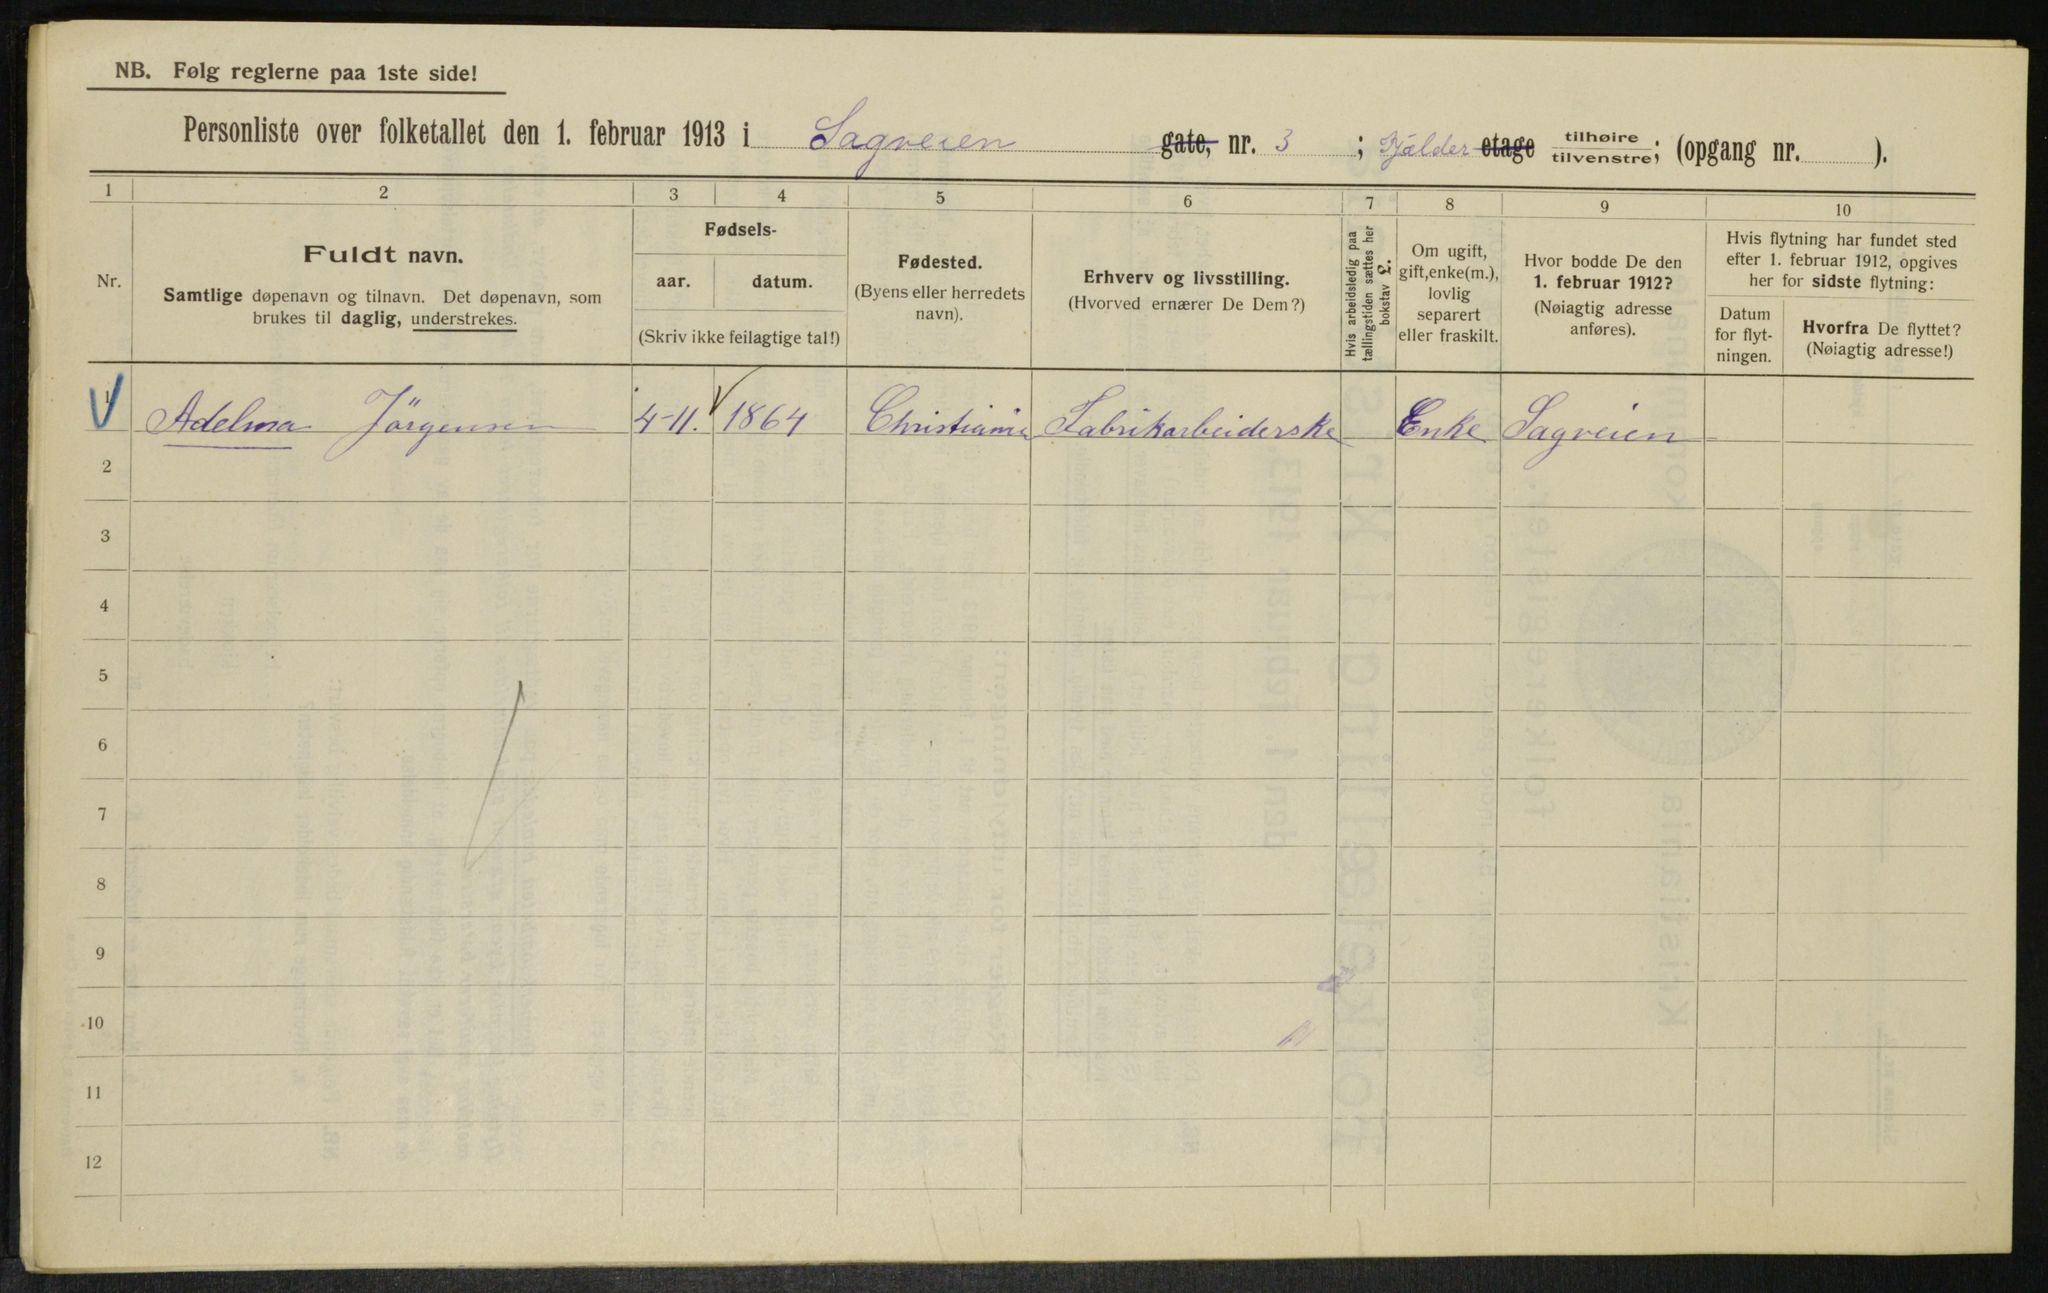 NB. Følg reglerne paa 1ste side!
Personliste over folketallet den 1. februar 1913 i Sagveien gate, nr. 3 ; Kjælder etage tilhøire tilvenstre; (opgang nr. ).
1 2 3 4 5 6 7 8 9 10
Nr.
Fuldt navn.
Samtlige døpenavn og tilnavn. Det døpenavn, som
brukes til daglig, understrekes.
Fødsels-
aar. datum.
(Skriv ikke feilagtige tal!)
Fødested.
(Byens eller herredets
navn).
Erhverv og livsstilling.
(Hvorved ernærer De Dem?)
Hvis arbeidsledig paa
tællingstiden sættes her
bokstav £.
Om ugift,
gift, enke(m.),
lovlig
separert
eller fraskilt.
Hvor bodde De den
1. februar 1912?
(Nøiagtig adresse
anføres).
Hvis flytning har fundet sted
efter 1. februar 1912, opgives
her for sidste flytning:
Datum
for flyt-
ningen.
Hvorfra De flyttet?
(Nøiagtig adresse!)
1 Adelma Jörgensen 4-11. 1864 Christiania Fabrikarbeiderske Enke Sagveien
2
3
4
5
6
7
8
9
10
11
12